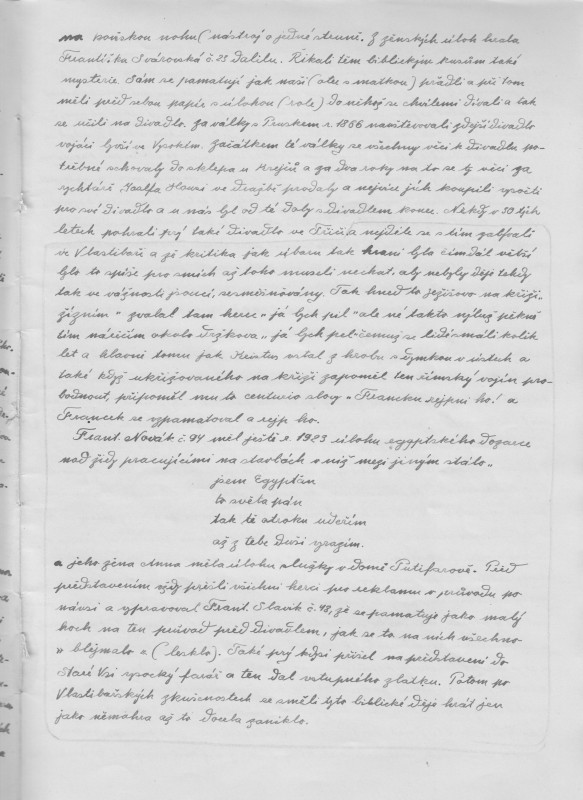 na koňskou nohu (nástroj o jedné struně. Z ženských úloh hrála
Františka Svárovská č. 23 Dalilu. Říkali těm biblickým kusům také
mysterie. Sám se pamatuji jak naši (ale s matkou) předli a při tom
měli před sebou papír s úlohou (role) do nikoj se chvílemi dívali a tak
se učili na divadlo. Za války s Pruskem r. 1866 navštěvovali zdejší divadlo
vojáci ve Vysokém. Začátkem té války se všechny věci k divadlu po-
třebné schovaly do sklepa u a za dva roky na to se ty věci za
rychtáři ve dražbě prodaly a nejvíce jich koupili vysočtí
pro své divadlo a u nás byl od té doby s divadlem konec. Někdy v 30 tých
letech sehráli prý také divadlo ve nejdéle se s tím
ve Vlastiboři a jé kritika jak úboru tak hraní byla čím dál větší
bylo to spíše pro smích až toho museli nechat, aby nebyly děje tehdy
tak ve vážnosti jsoucí, zesměšňovány. Tak hned to Ježíšovo na kříži „
žízním" zvolal tam herec „já bych pil" ale né takto nýbrž pěkně
tím nářečím okolo Držkova „já bych pel" čemuž se lidé smáli kolik
let a hlavně tomu jak Kristus vstal z hrobu s dýmkou v ústech a
také když ukřižovaného na kříži zapoměl ten římský vojín pro-
bodnout, připoměl mu to centurio slovy „Francku rejpni ho! a
Francek se vzpamatoval a rejp ho.
Frant. Novák č. 94 měl ještě r. 1923 úlohu egyptského dozorce
nad židy pracujícími na stavbách v níž mezi jiným stálo „
jsem Egypťan
to světa pán
tak tě otroku udeřím
až z tebe duši vyrazím.
a jeho žena Anna měla úlohu služky v domě Putifarově. Před
představením vždy prošli všichni herci pro reklamu v průvodu po
návsi a vypravoval Frant. Slavík č. 48, že se pamatuje jako malý
hoch na ten průvod před divadlem, jak se to na nich všechno
" blejmalo " (lesklo). Také prý kdysi přišel na představení do
Staré Vsi vysocký farář a ten dal vstupného zlatku. Potom po
Vlastibořských zkušenostech se směli tyto biblické děje hrát jen
jako němohra až to docela zaniklo.